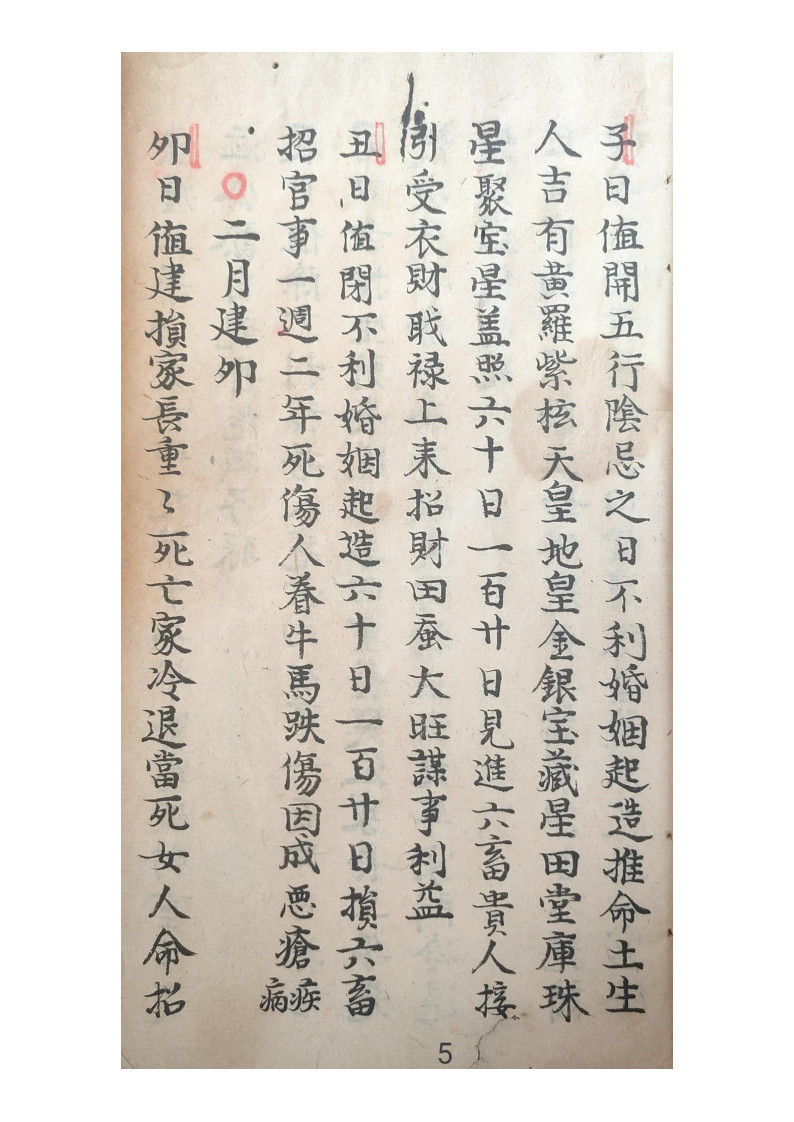 子日值開五行陰忌之日不利婚姻起造推命土生
人吉有黃羅紫桉天皇地皇金銀宝藏星田堂庫珠
星聚宝星盖照六十日一百廿日見進六畜貴人接
引受衣財耺禄上来招財田蚕大旺謀事利益
丑日值閉不利婚姻起造六十日一百廿日損六畜
招官事一週二年死傷人眷牛馬跌傷因成悪瘡疾病
二月建卯
卯日值建損家長重〻死亡家冷退當死女人命招
5